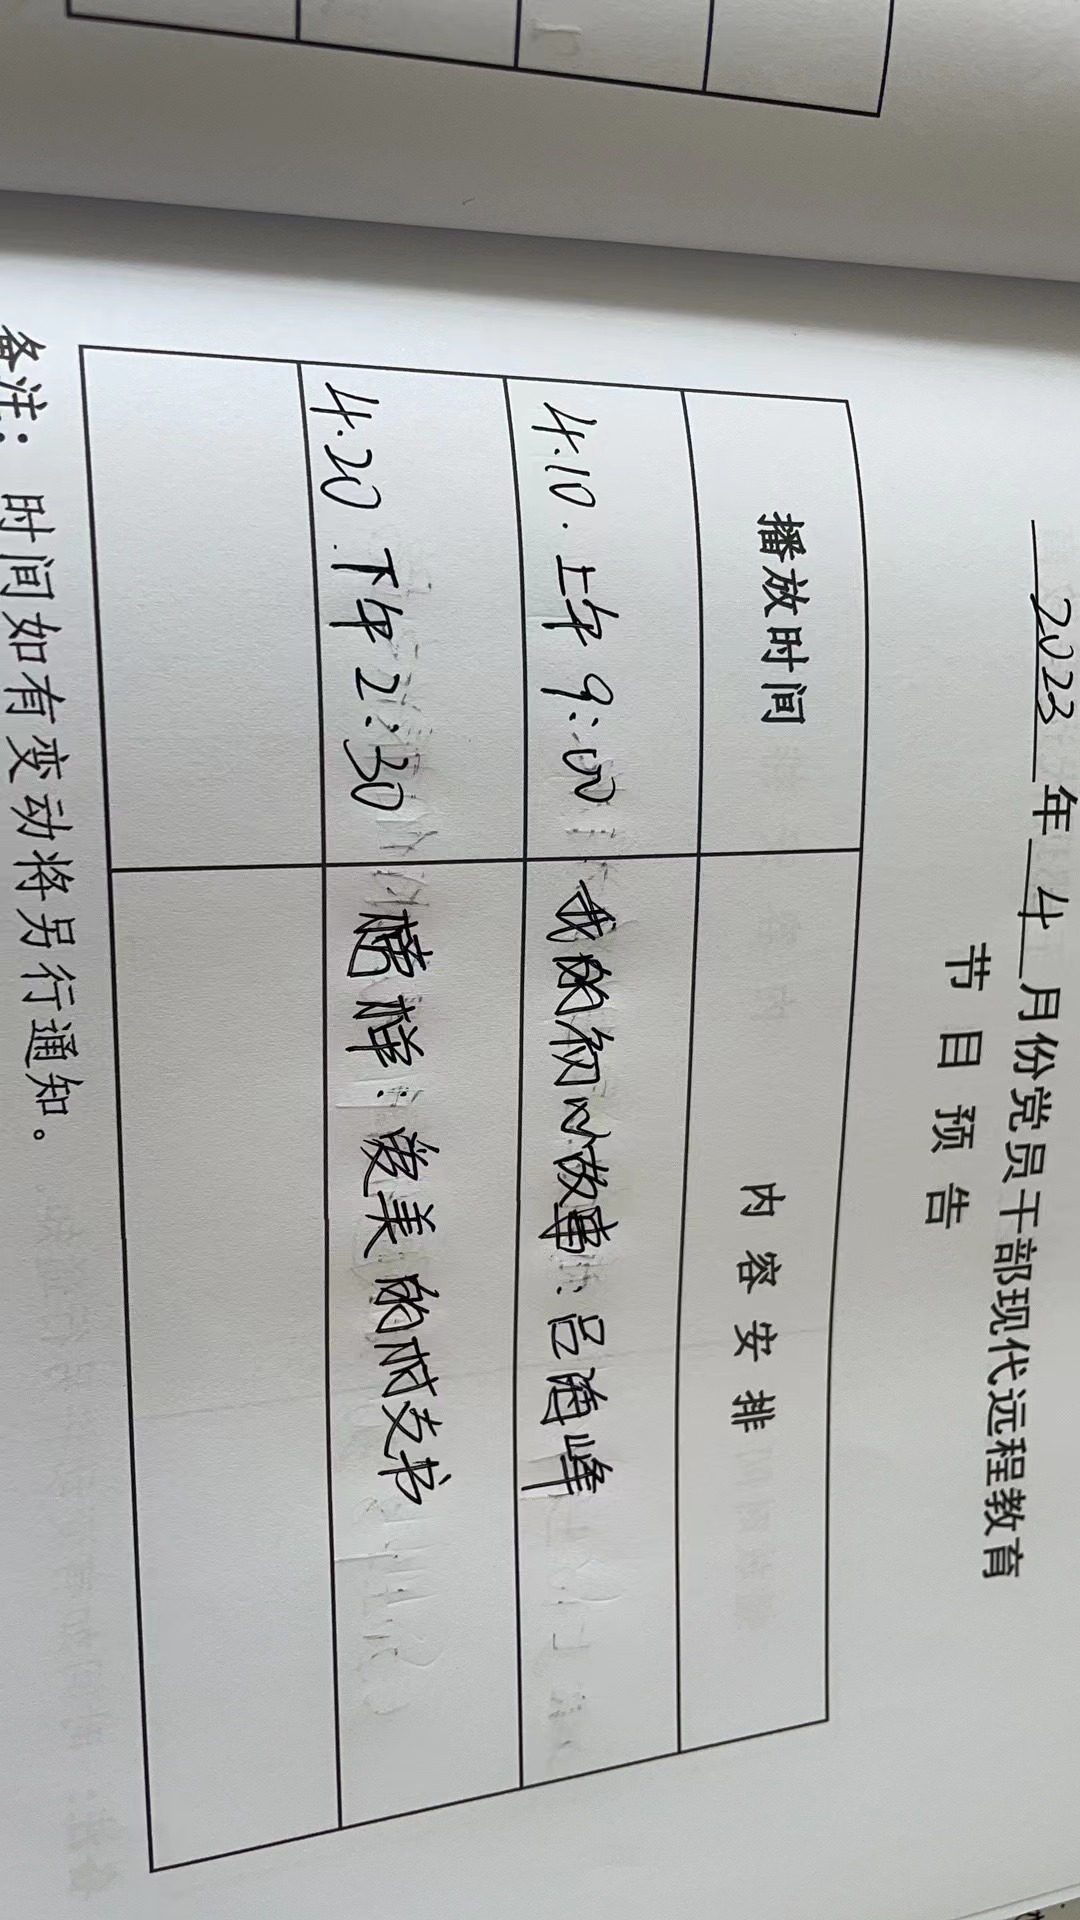 2023年4月份党员干部现代远程教育
节目预告
播放时间 内容安排
4.10.上午9:00 我的初心故事:吕涛峰
4.20.下午2:30 榜样:最美的村支书
备注：时间如有变动将另行通知。